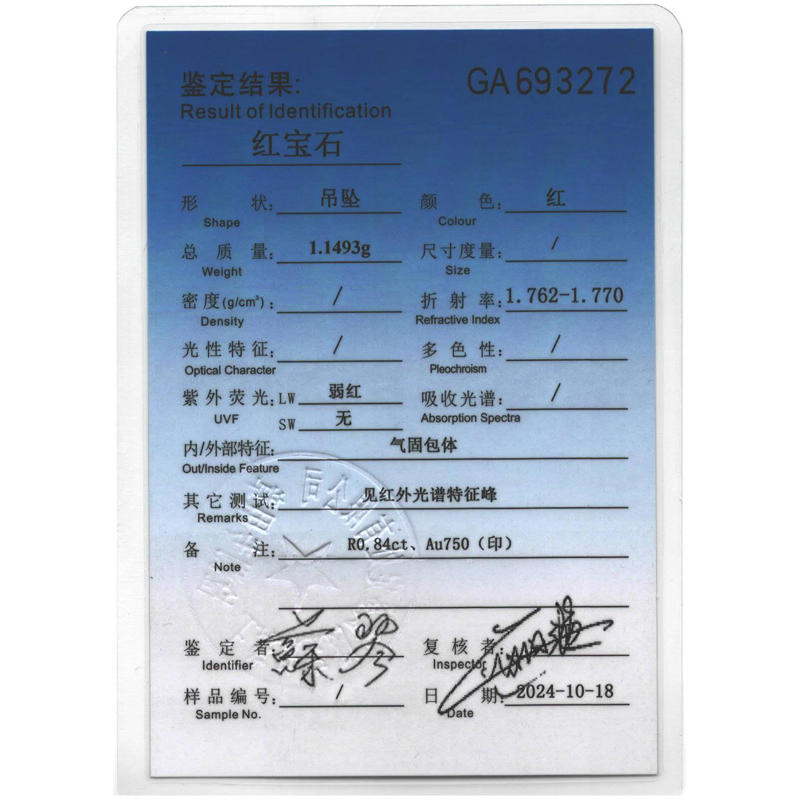 鉴定结果: GA693272
Result of Identification
红宝石
形 状: 吊坠 颜 色: 红
Shape Colour
总 质 量: 1.1493g 尺寸度量: /
Weight Size
密度(g/cm³): / 折 射 率: 1.762-1.770
Density Refractive Index
光性特征: / 多 色 性: /
Optical Character Pleochroism
紫外荧光: LW 弱红 吸收光谱: /
UVF SW 无 Absorption Spectra
内/外部特征: 气固包体
Out/Inside Feature
其它测试: 见红外光谱特征峰
Remarks
备 注: R0.84ct、Au750（印）
Note
鉴 定 者: 复 核 者:
Identifier Inspector
样品编号: / 日 期: 2024-10-18
Sample No. Date